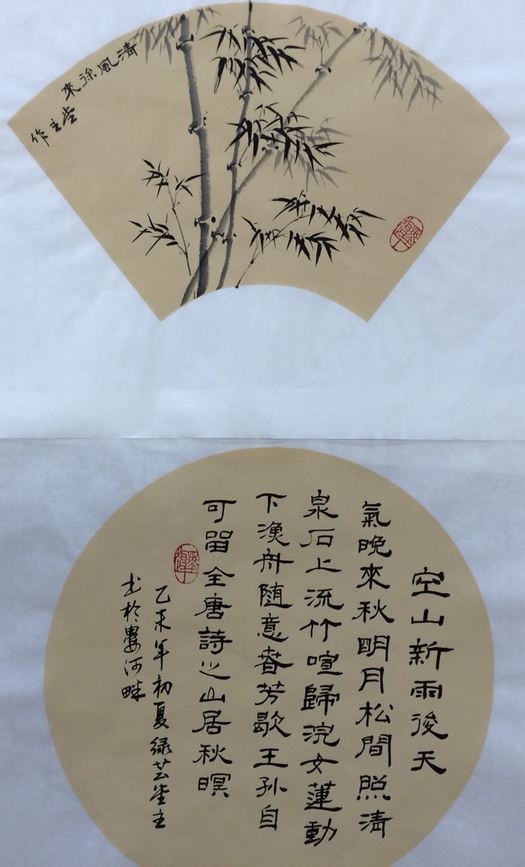 清風徐來
堂主作
空山新雨後天
氣晚來秋明月松間照清
泉石上流竹喧歸浣女蓮動
下漁舟随意春芳歇王孙自
可留全唐詩之山居秋暝
乙未年初夏绿芸堂主
书於娄河畔